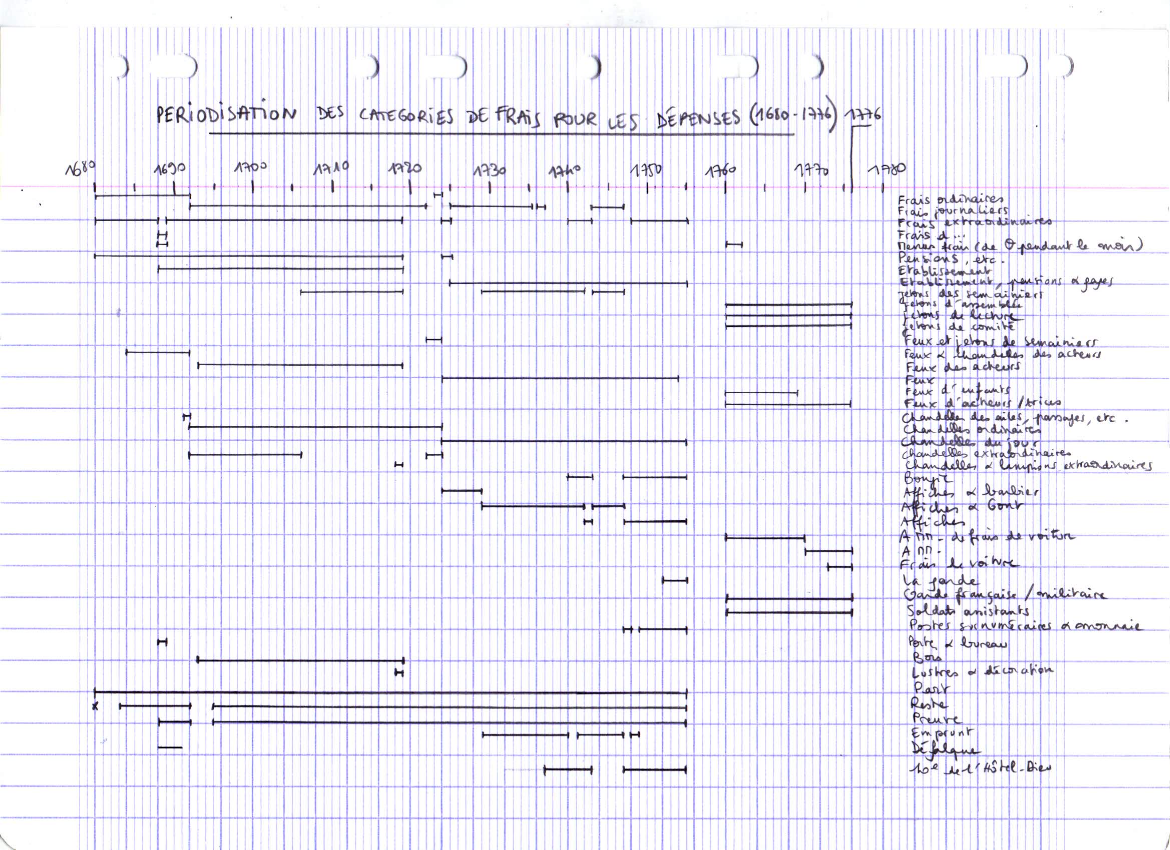 PERIODISATION DES CATEGORIES DE FRAIS POUR LES DEPENSES (1680-1776) 1776
1680 1690 1700 1710 1720 1730 1740 1750 1760 1770 1780
Frais ordinaires
Frais journaliers
Frais extraordinaires
Frais d...
Menus frais (de pendant le mois)
Pensions, etc.
Etablissement
Etablissement, pensions & gages
Jetons des semainiers
Jetons d'assemblée
Jetons de lecture
Jetons de comité
Feux et jetons de semainiers
Feux & chandelles des acteurs
Feux des acteurs
Feux
Feux d'enfants
Feux d'acteurs/trices
Chandelles des ailes, passages, etc.
Chandelles ordinaires
Chandelles du jour
Chandelles extraordinaires
Chandelles & lampions extraordinaires
Bougie
Affiches & barbier
Affiches & Gont
Affiches
A MM. de frais de voiture
A MM.
Frais de voiture
La garde
Garde française/militaire
Soldats assistants
Postes surnuméraires & monnaie
Porte & bureau
Bois
Lustres & décoration
Part
Reste
Preuve
Emprunt
Défalque
10e de l'Hôtel-Dieu